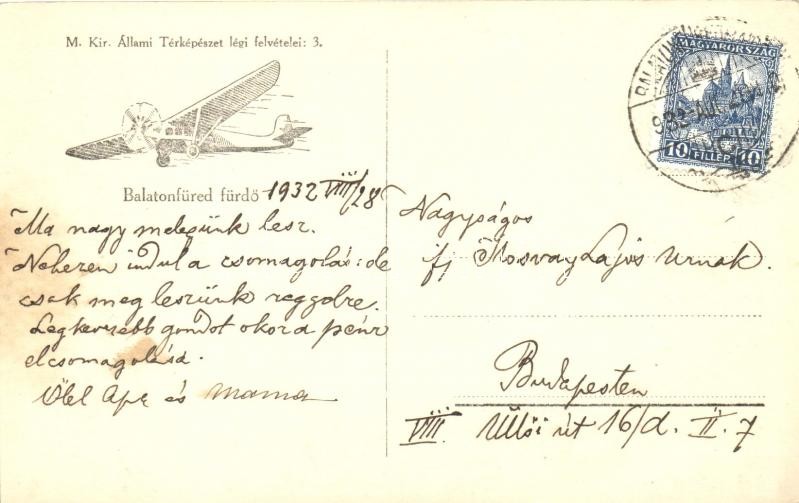 M. Kir. Állami Térképészet légi felvételei: 3.
Balatonfüred fürdő 1932 VIII/28
Ma nagy melegünk lesz.
Nehezen indul a csomagolás: de
csak meg leszünk reggelre.
Legkevesebb gondot okoz a pénz
elcsomagolása.
Ölel Apa és Mama
MAGYARORSZÁG
10 FILLÉR 10
932 AUG. 28
Nagyságos
ifj Ilosvay Lajos Urnák.
Budapesten
VIII. Üllői út 16/d. II. 7